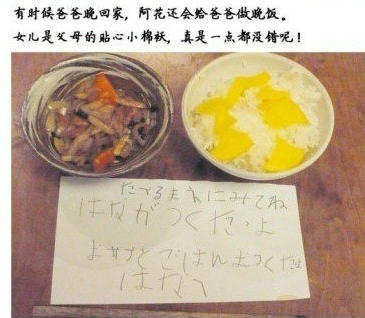 有时候爸爸晚回家，阿花还会给爸爸做晚饭。
女儿是父母的贴心小棉袄，真是一点都没错呢！
たべるまえにみてね
はながつくたよ
ごはんおつくた
はな